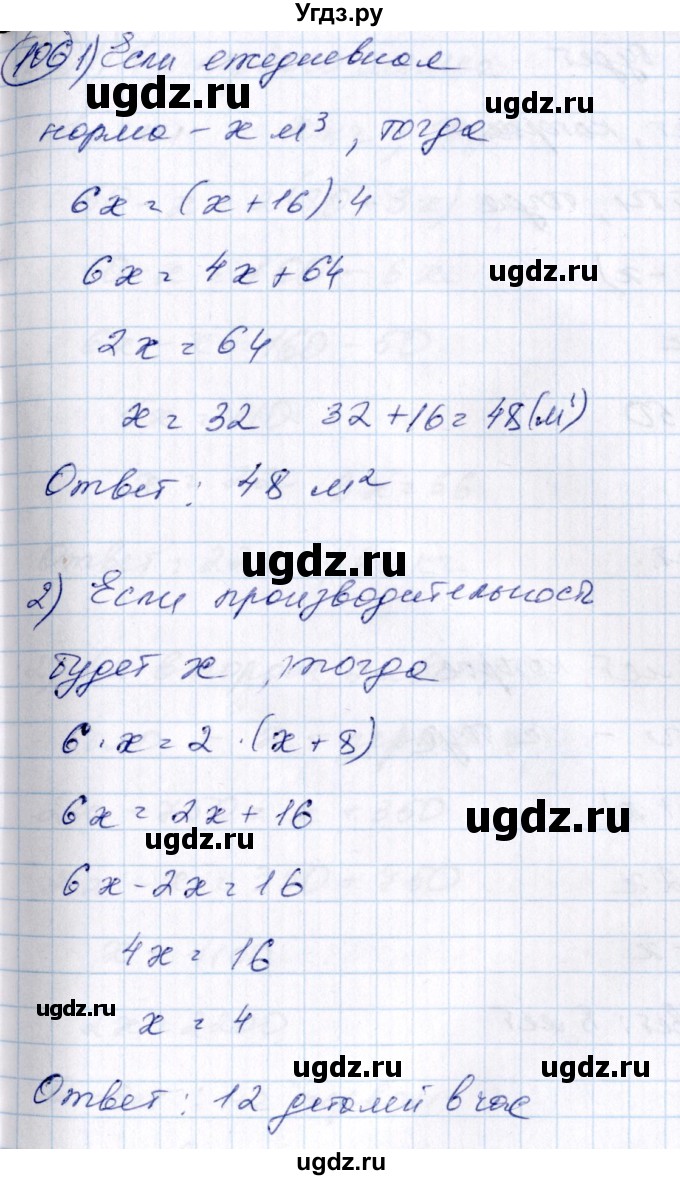 Угдз.ру
106 1) Если ежедневная
ugdz.ru
норма - x м³, тогда
6x = (x + 16) · 4
6x = 4x + 64
ugdz.ru
2x = 64
x = 32 32 + 16 = 48 (м¹)
Ответ: 48 м²
ugdz.ru
2) Если производительность
будет x, тогда
6 · x = 2 · (x + 8)
6x = 2x + 16
ugdz.ru
ugdz.ru
6x - 2x = 16
4x = 16
ugdz.ru
x = 4
ugdz.ru
ugdz.ru
Ответ: 12 деталей в час
ugdz.ru